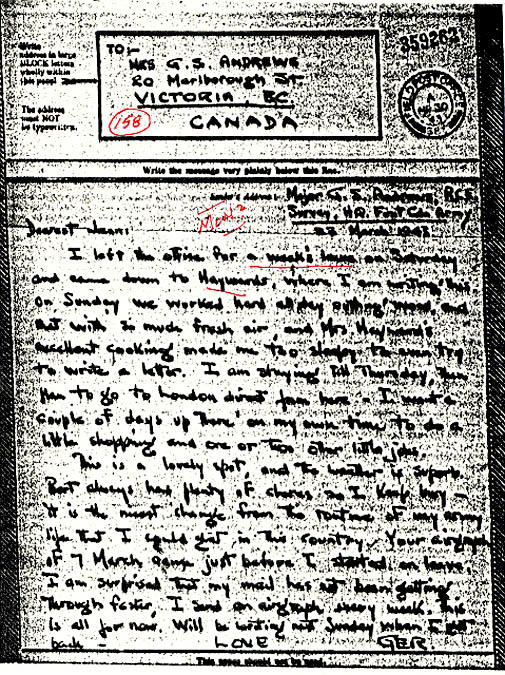 Write
address in large
BLOCK letters
wholly within
this panel
The address
must NOT
be typewritten.
TO:-
MRS G. S. ANDREWS
20 Marlborough St.
VICTORIA, BC
CANADA
158
359262
FIELD POST OFFICE
30
Write the message very plainly below this line.
Sender's address: Major G. S. Andrews, RCE
Survey, HQ. First Cdn Army
March 1943
Dearest Jean:
I left the office for a week's leave on Saturday
and came down to Haywards, where I am writing this
on Sunday we worked hard all day cutting wood, and
that with so much fresh air and Mrs Hayward's
excellent cooking made me too sleepy to even try
to write a letter. I am staying till Thursday, then
plan to go to London direct from here - I want a
couple of days up there on my own time to do a
little shopping and one or two other little jobs.
This is a lovely spot, and the weather is superb.
Bert always has plenty of chores so I keep busy -
it is the nicest change from the routine of my army
life that I could get in this country. Your airgraph
of 7 March came just before I started on leave.
I am surprised that my mail has not been getting
through faster, I send an airgraph every week. This
is all for now. Will be writing next Sunday when I get
back - LOVE GER.
This space should not be used.